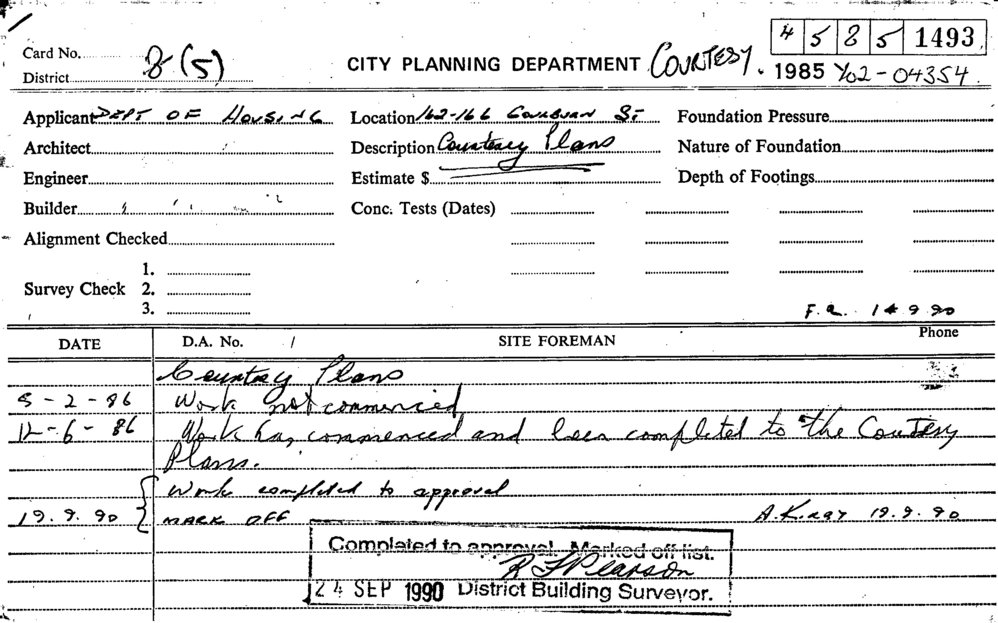 45 85 1493
Card No.
8 (5)
CITY PLANNING DEPARTMENT COURTESY.
1985 Y02-04354
District
Applicant DEPT OF HOUSING Location 162-166 Foundation Pressure
Architect Description Courtesy Plans Nature of Foundation
Engineer Estimate $ Depth of Footings
Builder Conc. Tests (Dates)
Alignment Checked
1.
Survey Check 2.
3.
9 90
DATE D.A. No. SITE FOREMAN Phone
Courtesy Plans
5-2-86 Work not commenced
12-6-86 Work has commenced and been completed to the Courtesy
Plans.
Work completed to approval
19.9.90 MARK OFF 19.9.90
Completed to approval. Marked off list.
Pearson
24 SEP 1990 District Building Surveyor.